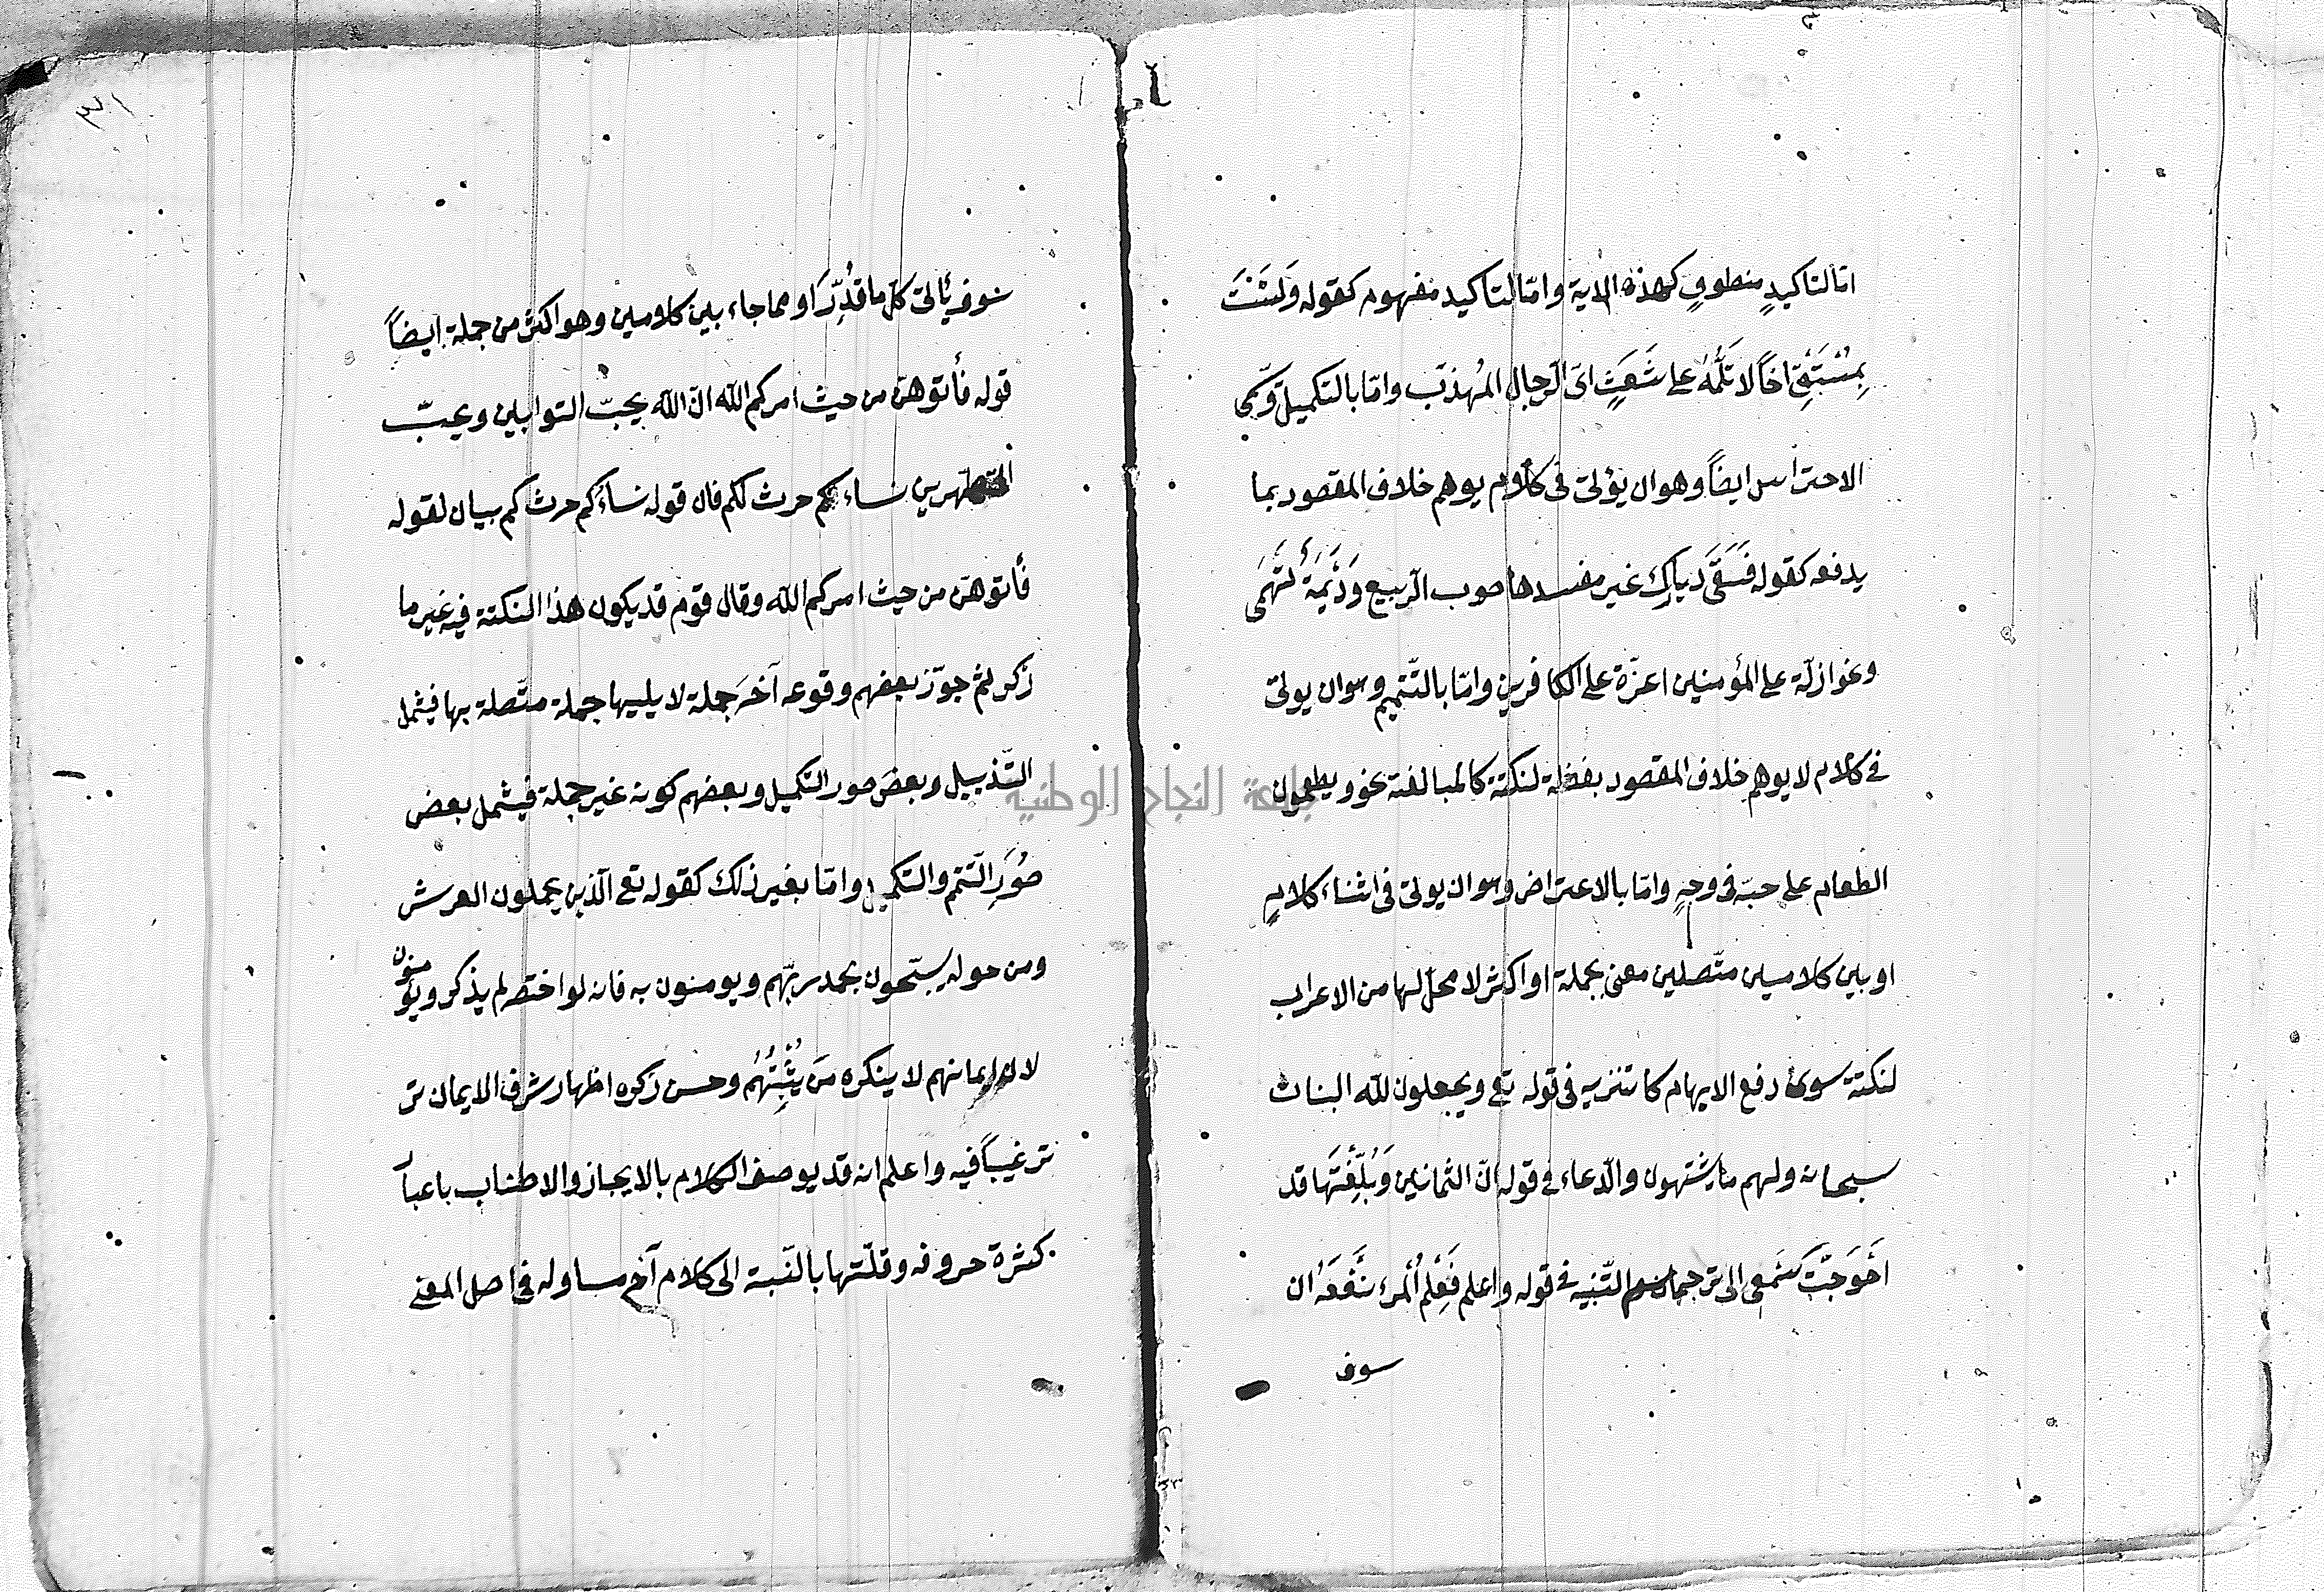 امّا لتاكيدٍ منطوقٍ كهذه الاية وامّا لتاكيد مفهوم كقوله وَلَسْتَ
بِمُسْتَبْقٍ اخاً لا تَلُمُّهُ على شَعَثٍ ايّ الرّجال المُهذّب وامّا بالتكميل ويسمى
الاحتراس ايضاً وهو ان يؤتى فى كلام يوهم خلاف المقصود بما
يدفعه كقوله فَسَقَى دياركِ غير مفسدها صوب الرّبيع وَدْيَمَةُ تَهْمَى
ونحو اذلّة على المؤمنين اعزّة على الكافرين وامّا بالتّتميم وهو ان يوتى
فى كلام لا يوهم خلاف المقصود بفضلة لنكتة كالمبالغة نحو ويطعمون
الطّعام على حبّه فى وجهٍ وامّا بالاعتراض وهو ان يوتى فى اثناء كلامٍ
او بين كلامين متّصلين معنى بجملة او اكثر لا محلّ لها من الاعراب
لنكتة سوى دفع الايهام كا تنزيه فى قوله تعٰ ويجعلون للّه البنات
سبحانه ولهم ما يشتهون والدّعاء فى قوله انّ الثمانين وَبُلِّغْتَهَا قد
اَحْوَجَتْ سَمْعى الى ترجمان والتّنبيه فى قوله واعلم فَعِلْمُ الْمرء يَنْفَعَهُ ان
سوف
سوف يأتى كلّ ما قُدِّرَا ومما جاء بين كلامين وهو اكثر من جملة ايضاً
قوله فأتوهنّ من حيث امركم اللّه انّ اللّه يحبّ التوابين ويحبّ
المتطهرين نساءكم حرث لكم فان قوله نساؤكم حرث كم بيان لقوله
فأتوهنّ من حيث امركم اللّه وقال قوم قد يكون هذا النكتة فيه غير ما
ذكر ثم جوّز بعضهم وقوعه آخرَ جملة لا يليها جملة متّصلة بها فيشمل
التّذييل وبعضَ صور التّكميل وبعضهم كونه غير جملة فيشمل بعض
صُوَرِ التّتم والتكميل وامّا بغير ذلك كقوله تعٰ الّذين يحملون العرش
ومن حوله يسبّحون بحمد ربّهم ويومنون به فانه لو اختصر لم يذكر ويؤ
منون
لان ايمانهم لا ينكره مَن يُثْبِتُهُم وحسن ذكره اظهار شرف الايمان تر
ترغيباً فيه واعلم انه قد يوصف الكلام بالايجاز والاطناب باعبا
كثرة حروفه وقلّتها بالنّسبة الى كلام آخر مساو له فى اصل المعنى
جامعة النجاح الوطنية